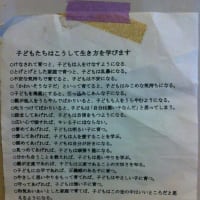 子どもたちはこうして生き方を学びます
○けなされて育つと、子どもは人をけなすようになる。
○とげとげした家庭で育つと、子どもは乱暴になる。
○不安な気持ちで育てると、子どもも不安になる。
○「かわいそうな子だ」と言って育てると、子どもはみじめな気持ちになる。
○子どもを馬鹿にすると、引っ込みじあんな子になる。
○親が他人をうらやんでばかりいると、子どもも人をうらやむようになる。
○叱りつけてばかりいると、子どもは「自分は悪い子なんだ」と思ってしまう。
○励ましてあげれば、子どもは自信をもつようになる。
○広い心で接すれば、キレる子にはならない。
○誉めてあげれば、子どもは明るい子に育つ。
○愛してあげれば、子どもは人を愛することを学ぶ。
○認めてあげれば、子どもは自分が好きになる。
○見つめてあげれば、子どもは頑張り屋になる。
○分かち合うことを教えれば、子どもは思いやりを学ぶ。
○親が正直であれば、子どもは正直であることの大切さを知る。
○子どもに公平であれば、子どもは正義感のある子に育つ。
○やさしく、思いやりをもって育てれば、子どもはやさしい子に育つ。
○守ってあげれば、子どもは強い子に育つ。
○和気あいあいとした家庭で育てば、子どもはこの世の中はいいところだと思えるようになる。